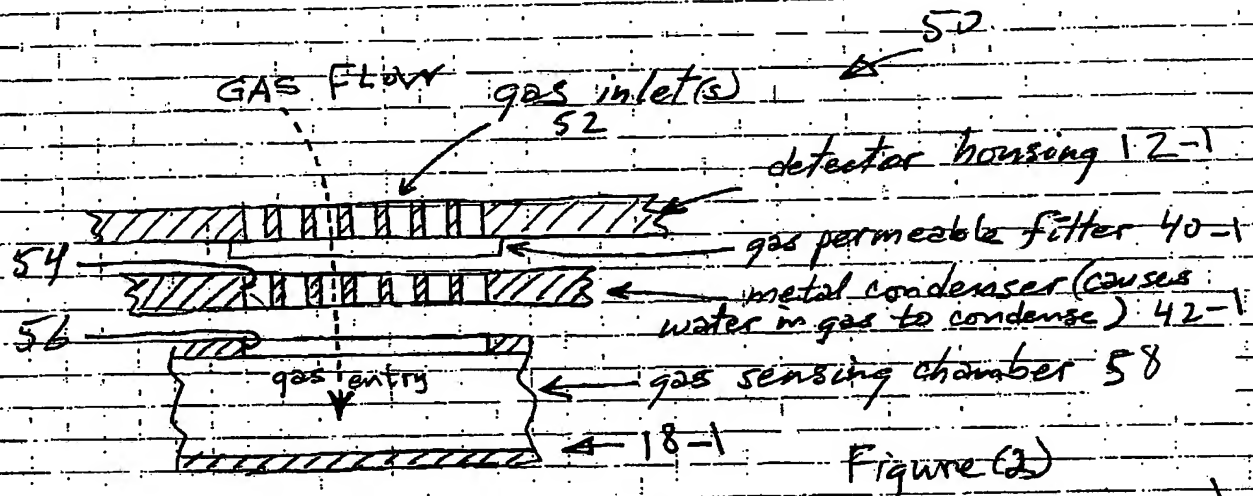 50
GAS FLOW
gas inlet(s)
52
detector housing 12-1
gas permeable filter 40-1
54
metal condenser (causes
water in gas to condense) 42-1
56
gas entry
gas sensing chamber 58
18-1
Figure (2)